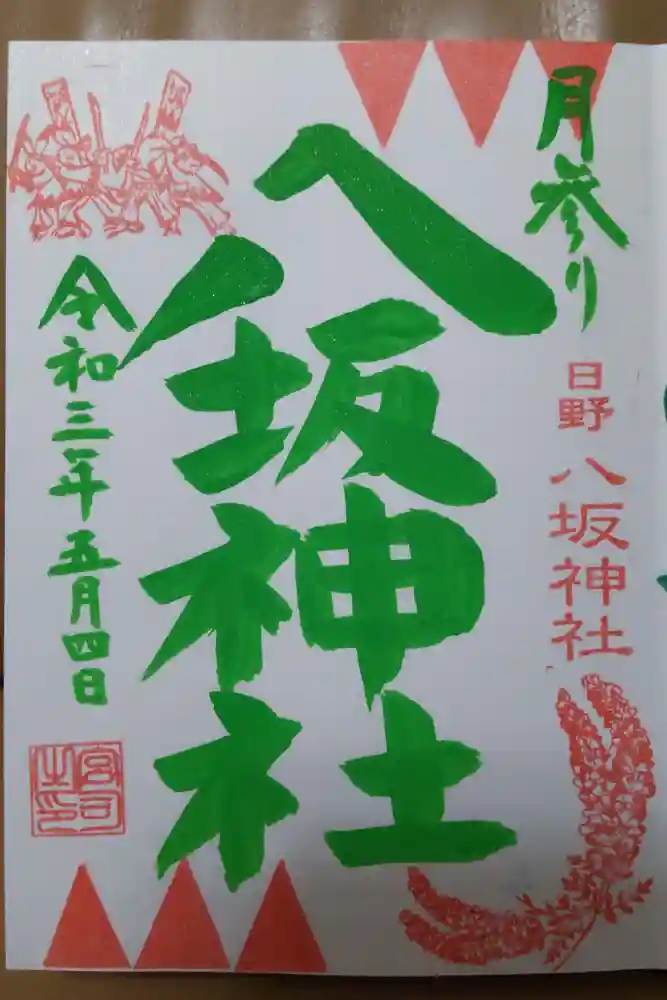 月参り
日野
八坂神社
八坂神社
令和三年五月四日
宮司之印